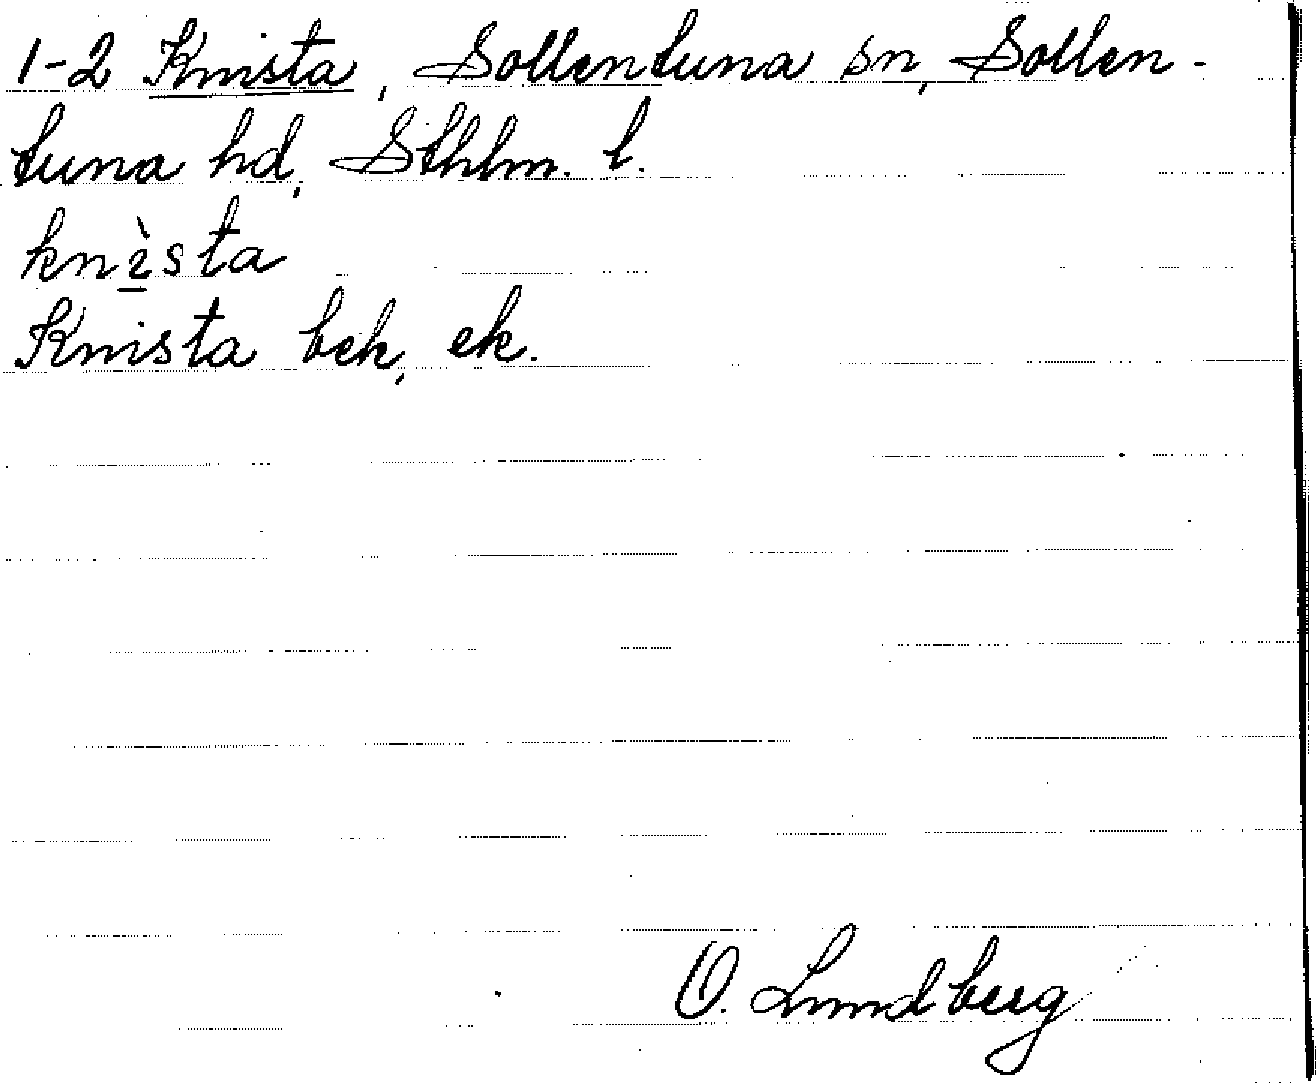 1-2 Knista, Sollentuna sn, Sollen-
tuna hd, Sthlm. l.
knìsta
Knista bck, ek.
O. Lundberg